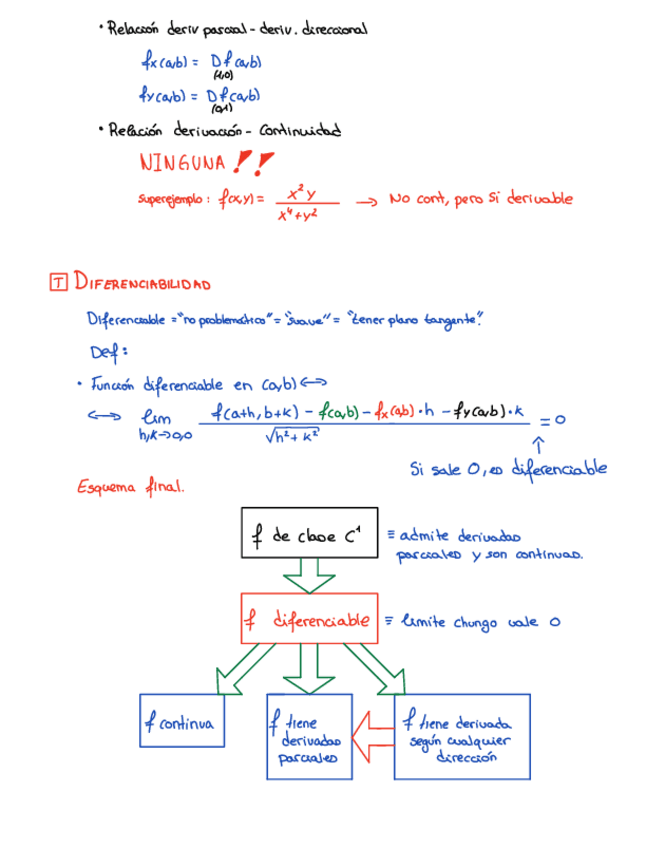 • Relación deriv parcial - deriv. direccional
fx(a,b) = Df(a,b)
(1,0)
fy(a,b) = Df(a,b)
(0,1)
• Relación derivación - Continuidad
NINGUNA !!
Superejemplo: f(x,y) = x²y / x⁴+y² → No cont, pero Si derivable
T DIFERENCIABILIDAD
Diferenciable = "no problemático" = "suave" = "tener plano tangente".
Def:
• Función diferenciable en (a,b) ⟷
⟷ lim h,k→0,0 f(a+h, b+k) - f(a,b) - fx(a,b)·h - fy(a,b)·k / √h²+k² = 0
↑
Si sale 0, es diferenciable
Esquema final.
f de clase C¹ ≡ admite derivadas
parciales y son continuas.
f diferenciable ≡ limite chungo vale 0
f continua
f tiene
derivadas
parciales
f tiene derivada
según cualquier
dirección